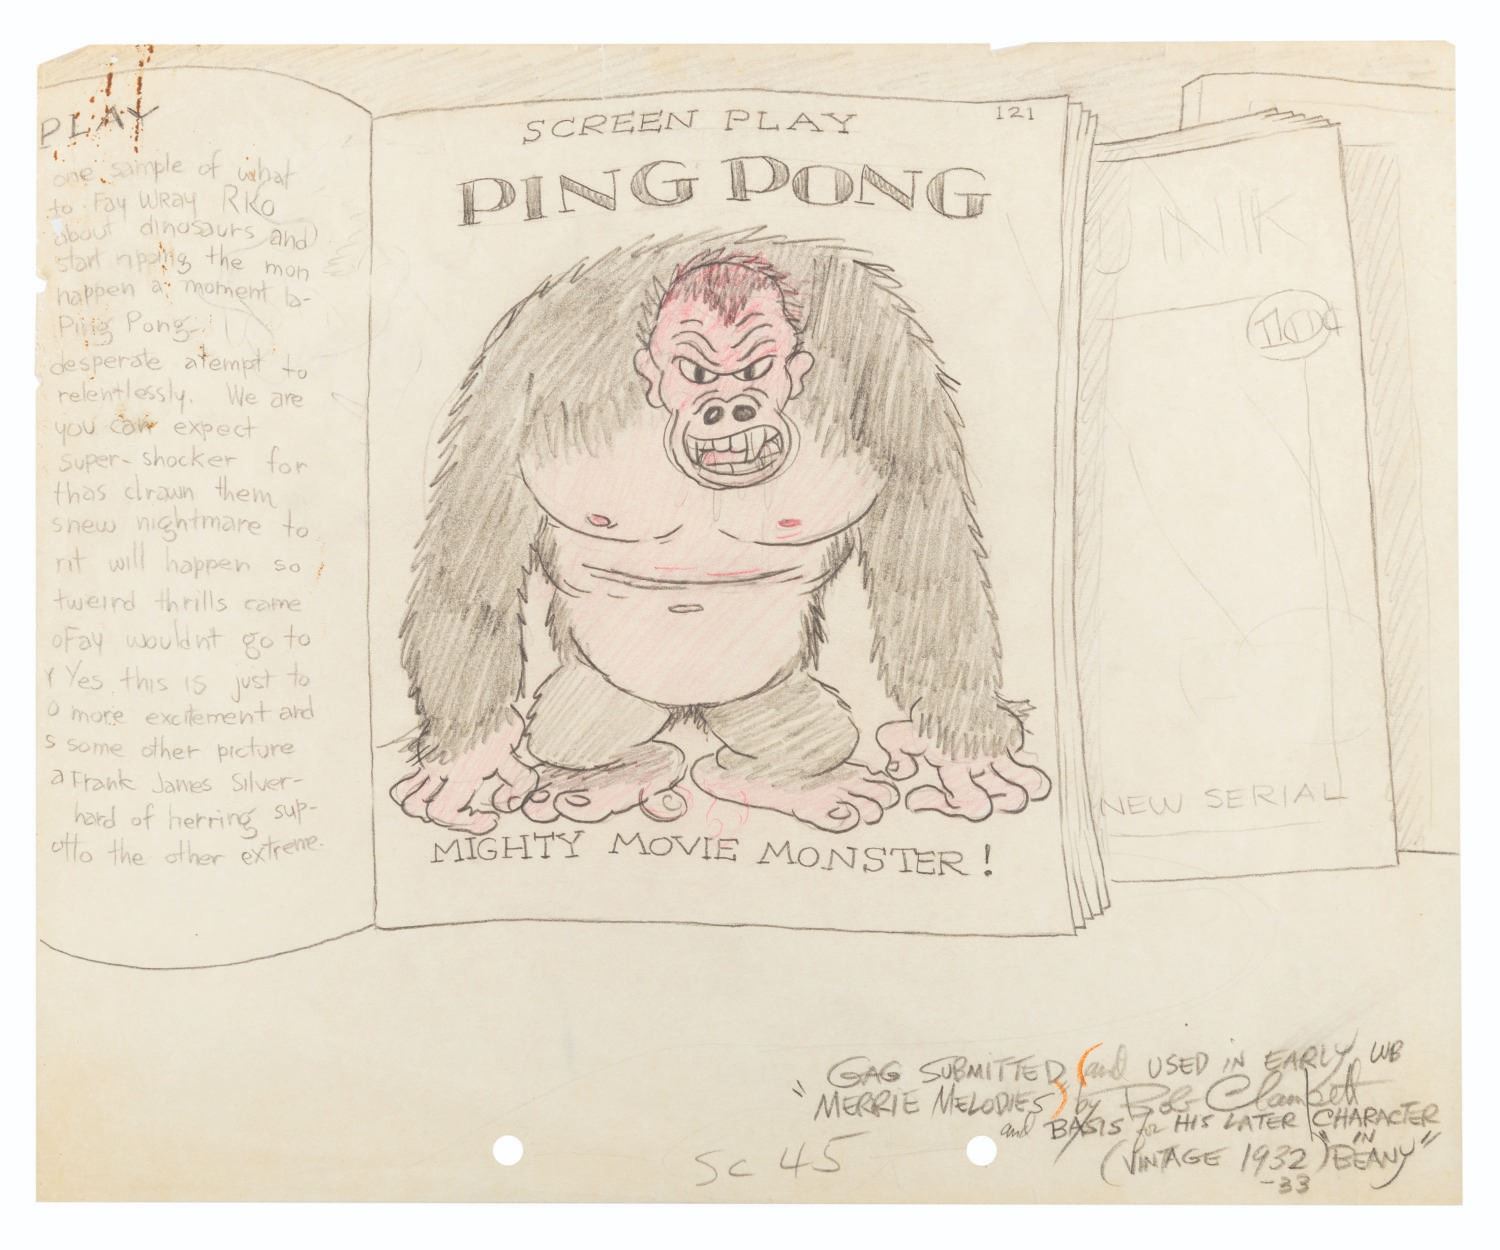 PLAY
one sample of what
to Fay Wray RKO
about dinosaurs and
start ripping the mon
happen a moment la-
Ping Pong-
desperate atempt to
relentlessly. We are
you can expect
super-shocker for
thas drawn them
snew nightmare to
nt will happen so
tweird thrills came
oFay wouldnt go to
r Yes, this is just to
o more excitement and
s some other picture
a Frank James Silver-
hard of herring sup-
otto the other extreme.
SCREEN PLAY
121
PING PONG
MIGHTY MOVIE MONSTER!
JINIK
10¢
NEW SERIAL
GAG SUBMITTED (and USED IN EARLY WB
"MERRIE MELODIES) by Bob Clampett
and BASIS for HIS LATER CHARACTER
IN
(VINTAGE 1932) "BEANY"
-33
SC 45